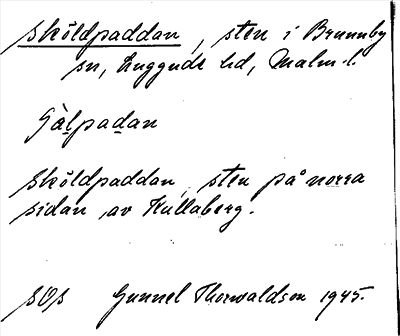 Sköldpaddan, sten i Brunnby
sn, Luggude hd, Malm. l.
Gàlpadan
Sköldpaddan, sten på norra
sidan av Kullaberg.
Gunnel Thorwaldson 1945.